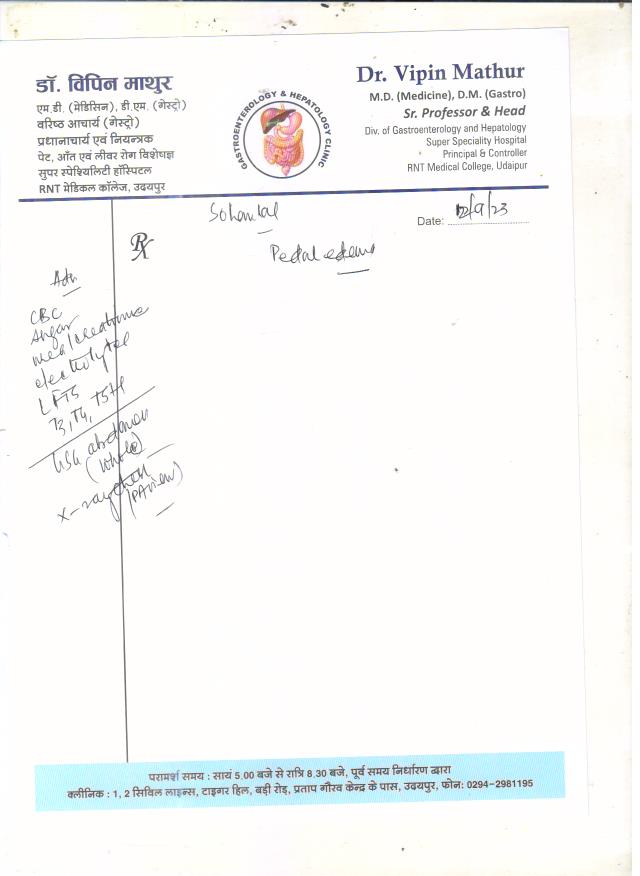 डॉ. विपिन माथुर
एम.डी. (मेडिसिन), डी.एम. (गेस्ट्रो)
वरिष्ठ आचार्य (गेस्ट्रो)
प्रधानाचार्य एवं नियन्त्रक
पेट, आँत एवं लीवर रोग विशेषज्ञ
सुपर स्पेश्यिलिटी हॉस्पिटल
RNT मेडिकल कॉलेज, उदयपुर
GASTROENTEROLOGY & HEPATOLOGY CLINIC
Dr. Vipin Mathur
M.D. (Medicine), D.M. (Gastro)
Sr. Professor & Head
Div. of Gastroenterology and Hepatology
Super Speciality Hospital
Principal & Controller
RNT Medical College, Udaipur
Sohanlal
Date: 12/9/23
Rx
Pedal edema
Adv
CBC
Sugar
urea/creatinine
electrolytes
LFTS
T3, T4, TSH
USG abdomen
(whole)
X-ray chest
(PA view)
परामर्श समय : सायं 5.00 बजे से रात्रि 8.30 बजे, पूर्व समय निर्धारण द्वारा
क्लीनिक : 1, 2 सिविल लाइन्स, टाइगर हिल, बड़ी रोड़, प्रताप गौरव केन्द्र के पास, उदयपुर, फोन: 0294-2981195